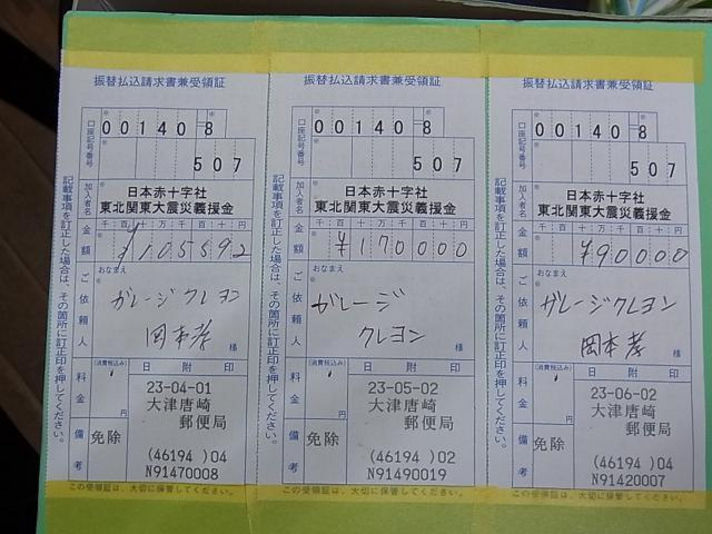 振替払込請求書兼受領証
口座記号番号
00140=8
507
加入者名
日本赤十字社
東北関東大震災義援金
金額
千百十万千百十円
¥105592
ご依頼人
おなまえ
ガレージクレヨン
岡本孝
様
料金
(消費税込み)
円
日附印
23-04-01
大津唐崎
郵便局
備考
免除
(46194 )04
N91470008
記載事項を訂正した場合は、その箇所に訂正印を押してください。
この受領証は、大切に保管してください。
振替払込請求書兼受領証
口座記号番号
00140=8
507
加入者名
日本赤十字社
東北関東大震災義援金
金額
千百十万千百十円
¥170000
ご依頼人
おなまえ
ガレージ
クレヨン
様
料金
(消費税込み)
円
日附印
23-05-02
大津唐崎
郵便局
備考
免除
(46194 )02
N91490019
記載事項を訂正した場合は、その箇所に訂正印を押してください。
この受領証は、大切に保管してください。
振替払込請求書兼受領証
口座記号番号
00140=8
507
加入者名
日本赤十字社
東北関東大震災義援金
金額
千百十万千百十円
¥90000
ご依頼人
おなまえ
ガレージクレヨン
岡本孝
様
料金
(消費税込み)
円
日附印
23-06-02
大津唐崎
郵便局
備考
免除
(46194 )04
N91420007
記載事項を訂正した場合は、その箇所に訂正印を押してください。
この受領証は、大切に保管してください。